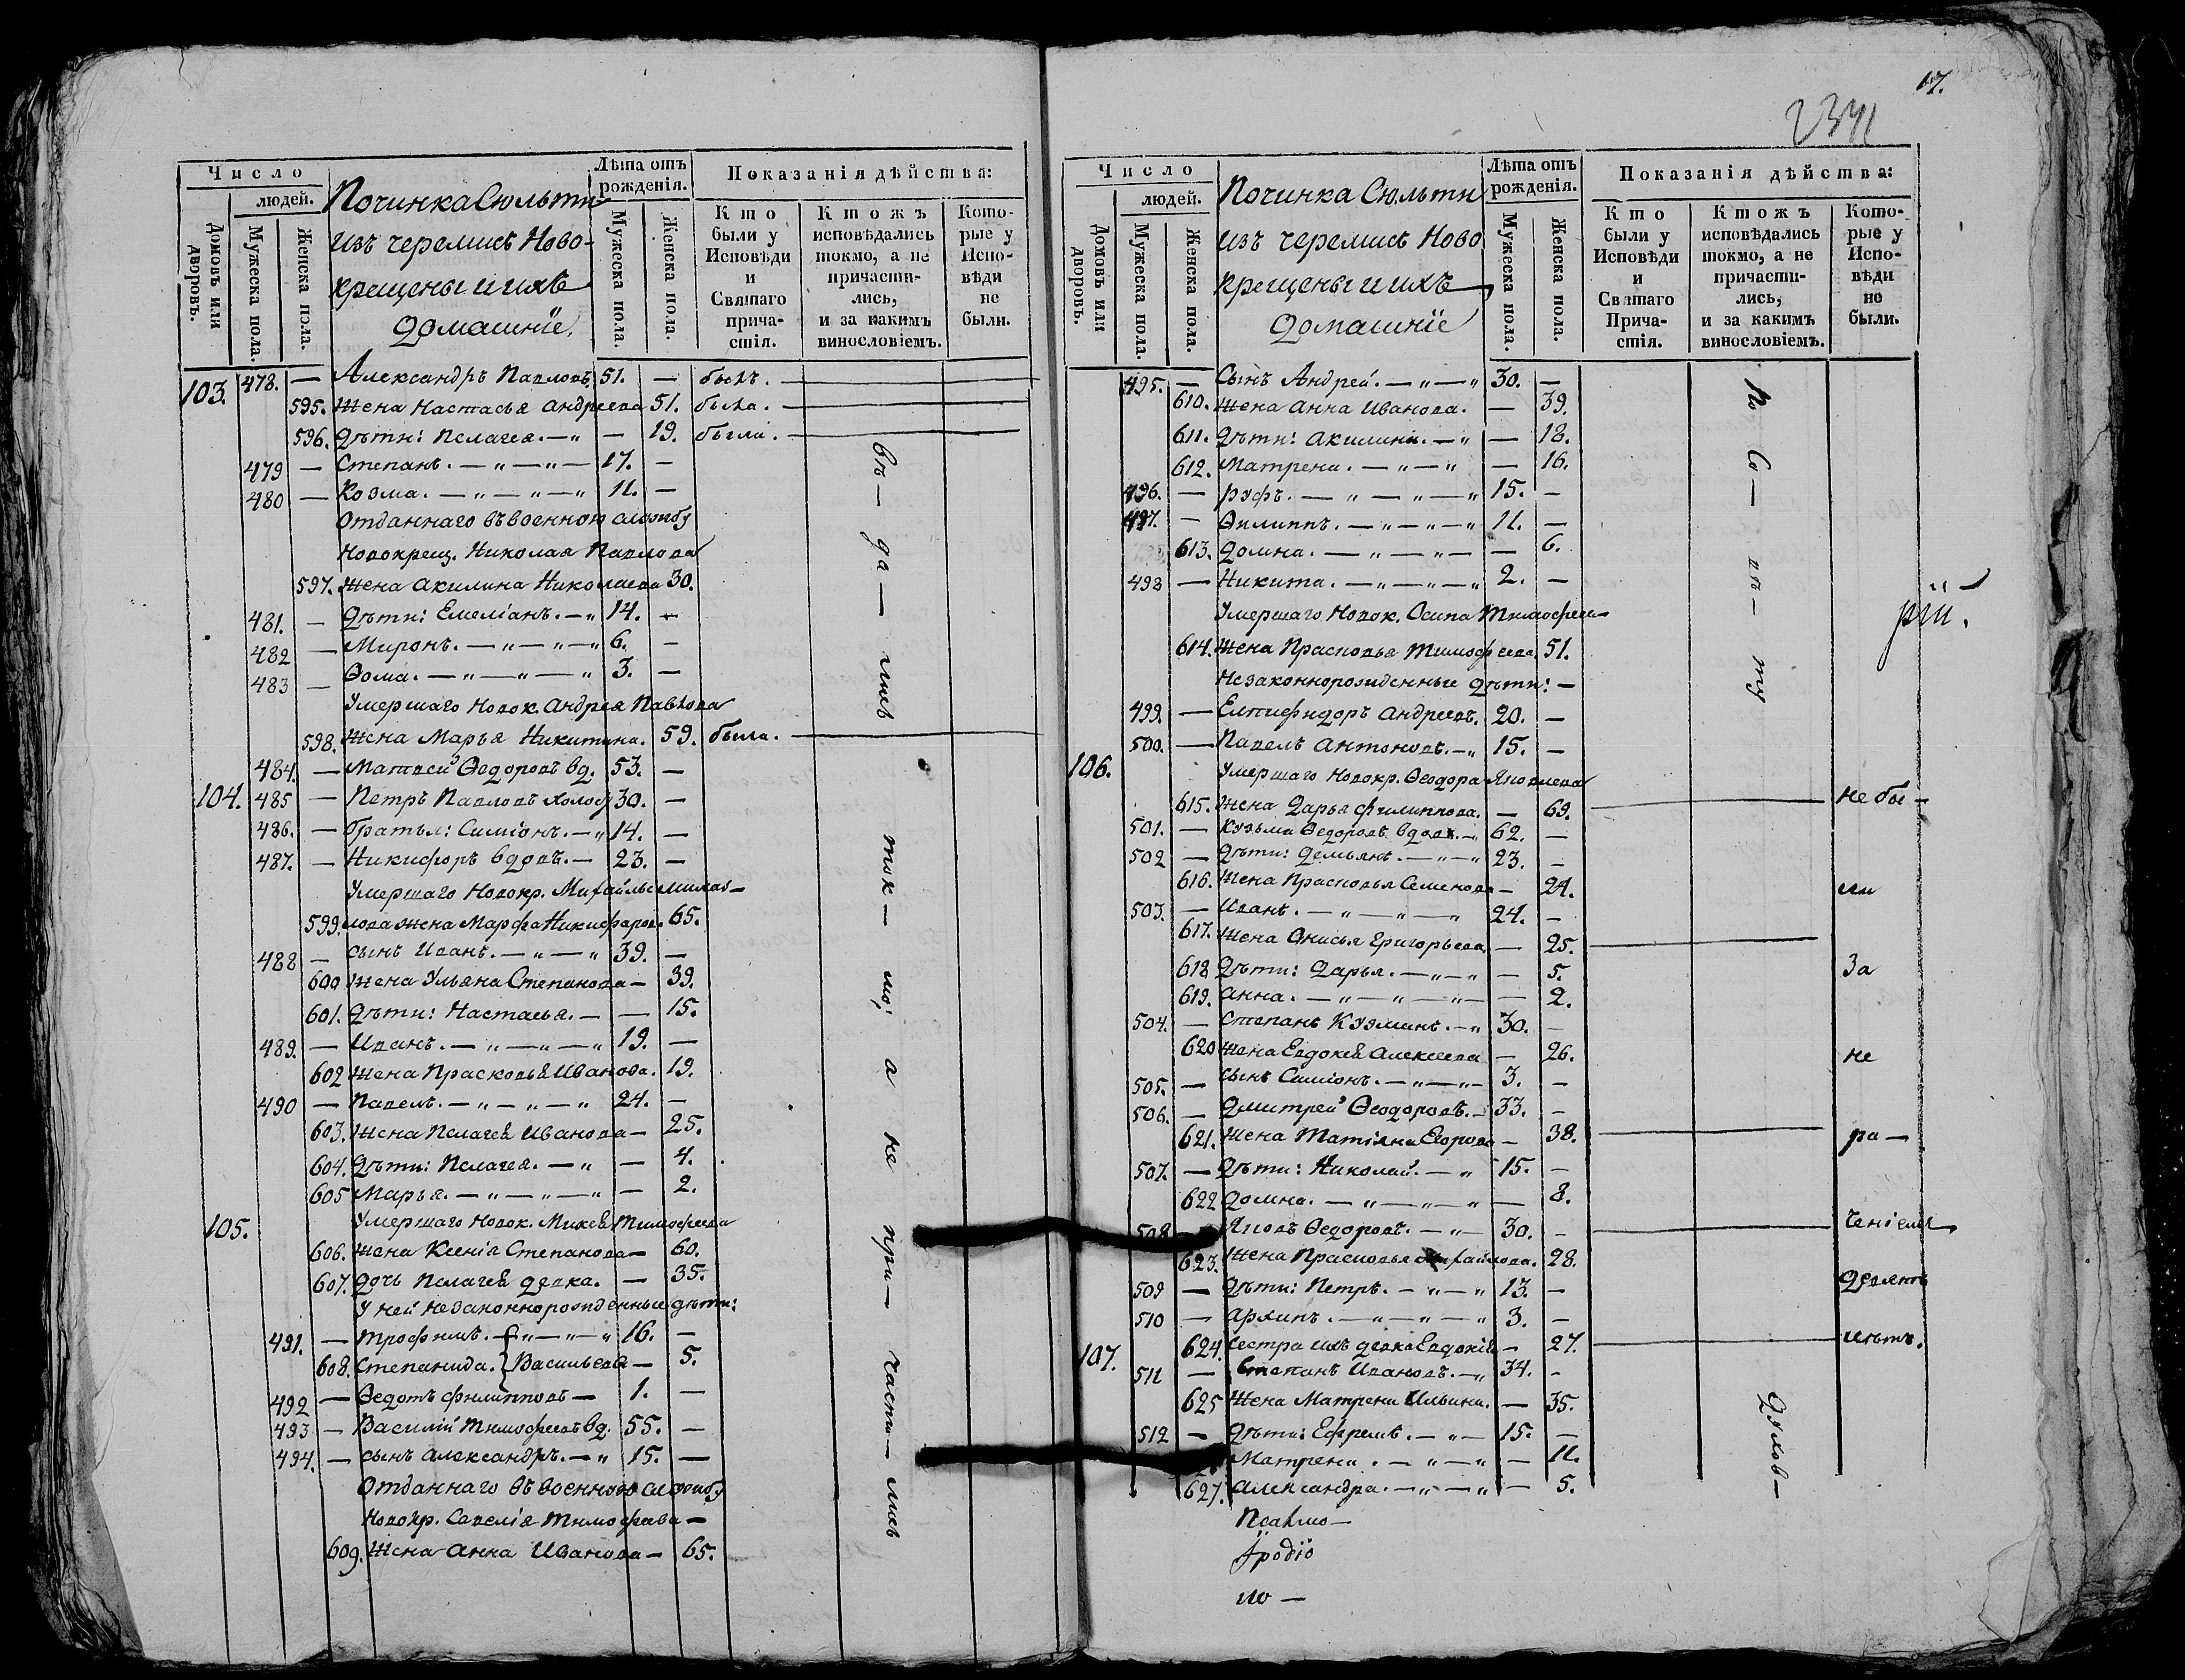 17.
2341
Число
людей.
Домовъ или дворовъ.
Мужеска пола.
Женска пола.
Починка Сюльти
изъ черемисъ Ново-
крещены и ихъ
домашніе.
Лѣта отъ рожденія.
Мужеска пола.
Женска пола.
Показанія дѣйства:
Кто были у Исповѣди и Святаго причастія.
Ктожъ исповѣдались токмо, а не причастились, и за какимъ винословіемъ.
Которые у Исповѣди не были.
103. 478. — Александръ Павловъ 51. — былъ. —
595. Жена Настасья Андреева 51. была. —
596. дѣти: Пелагея. — „ — 19. была. —
479 — Степанъ. — „ — „ — 17. —
480 — Козма. — „ — „ — „ 11. —
Отданнаго въ военною службу
Новокрещ. Николая Павлова
597. Жена Акилина Николаева 30.
481. — Дѣти: Емеліанъ. — „ 14. —
482 — Миронъ. — „ — „ — „ 6. —
483 — Ѳома. — „ — „ — „ 3. —
Умершаго Новок. Андрея Павлова
598. Жена Марья Никитина. 59. была. —
484. — Матвей Ѳедоровъ вд. 53. —
104. 485 — Петръ Павловъ холос. 30. —
486. — братья: Симіонъ. — „ 14. —
487. — Никифоръ вдовъ. — 23. —
Умершаго Новокр. Михайлы
599. Жена Марфа Никифаров. 65.
488 — сынъ Иванъ. — „ — „ 39. —
600 Жена Ульяна Степанова — 39.
601. Дѣти: Настасья. — — 15.
489. — Иванъ. — „ — „ — „ 19. —
602 Жена Прасковья Иванова. 19.
490 — Павелъ. — „ — „ — „ 24. —
603. Жена Пелагея Иванова — 25.
604. Дѣти: Пелагея. — „ — 4.
605 Марья. — „ — „ — „ — 2.
105. Умершаго Новок. Михея Тимофеева
606. Жена Ксенія Степанова — 60.
607. Дочь Пелагея дѣвка. — 35.
У ней незаконнорожденные дѣти:
491. — Трофимъ. — „ — „ — „ 16. —
608. Степанида. } Васильева — 5.
492 — Ѳедотъ Филипповъ — 1. —
493 — Василій Тимофеевъ вд. 55. —
494. — сынъ Александръ. — „ 15. —
Отданнаго въ военною службу
Новокр. Савелія Тимофеева —
609. Жена Анна Иванова — 65.
вѣ — да — лись
ток — мо, а не при — части — лись
Число
людей.
Домовъ или дворовъ.
Мужеска пола.
Женска пола.
Починка Сюльти
изъ черемисъ Ново
крещены и ихъ
домашніе
Лѣта отъ рожденія.
Мужеска пола.
Женска пола.
Показанія дѣйства:
Кто были у Исповѣди и Святаго Причастія.
Ктожъ исповѣдались токмо, а не причастились, и за какимъ винословіемъ.
Которые у Исповѣди не были.
495. — Сынъ Андрей. — „ — „ 30. —
610. Жена Анна Иванова. — 39.
611. Дѣти: Акилина. — „ — 18.
612. Матрена. — „ — „ — 16.
496. — Руфъ. — „ — „ — „ 15. —
497. — Филиппъ. — „ — „ — „ 11. —
613. Домна. — „ — „ — — 6.
498 — Никита. — „ — „ — „ 2. —
Умершаго Новок. Осипа Тимофеев—
614. Жена Прасковья Тимофеева. 51.
Незаконнорожденные дѣти: —
499. — Елпифидоръ Андреевъ. 20. —
500. — Павелъ Антоновъ. — „ 15. —
106. Умершаго Новокр. Ѳеодора Яковлева
615. Жена Дарья Филиппова. — 69. — не бы —
501. — Кузьма Ѳедоровъ вдов. — „ 62. —
502 — Дѣти: Демьянъ. — „ — „ 23. —
616. Жена Прасковья Семенова — 24. ли
503. — Иванъ. — „ — „ — „ 24. —
617. Жена Онисья Григорьева. — 25. —
618 Дѣти: Дарья. — „ — „ — 5. За
619. Анна. — „ — „ — „ — 2.
504. — Степанъ Кузминъ. — „ 30. —
620 Жена Евдокея Алексеева — 26. не
505. — сынъ Симіонъ. — „ — „ — 3. —
506. — Дмитрей Ѳеодоровъ. — 33. —
621. Жена Татіяна Егорова — 38. — ра —
507. — Дѣти: Николай. — „ 15. —
622 Домна. — „ — „ — „ — 8.
508 — Яковъ Ѳедоровъ. — „ — 30. — — ченіемъ
623. Жена Прасковья Михайлова. 28.
509 — Дѣти: Петръ. — „ — „ 13. —
510 — Архипъ. — „ — „ — „ 3. —
624. Сестра ихъ девка Евдокія — 27. —
107. 511 — Степанъ Ивановъ. — „ 34. —
625 Жена Матрена Ильина. — 35.
512 — Дѣти: Ефремъ. — „ — 15. —
Матрена. — „ — „ — 11.
627. Александра. — „ — „ — 5.
по
рій.
Духов —